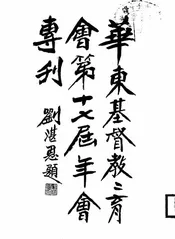 華東基督教教育
會第十七屆年會
專刊
劉湛恩題